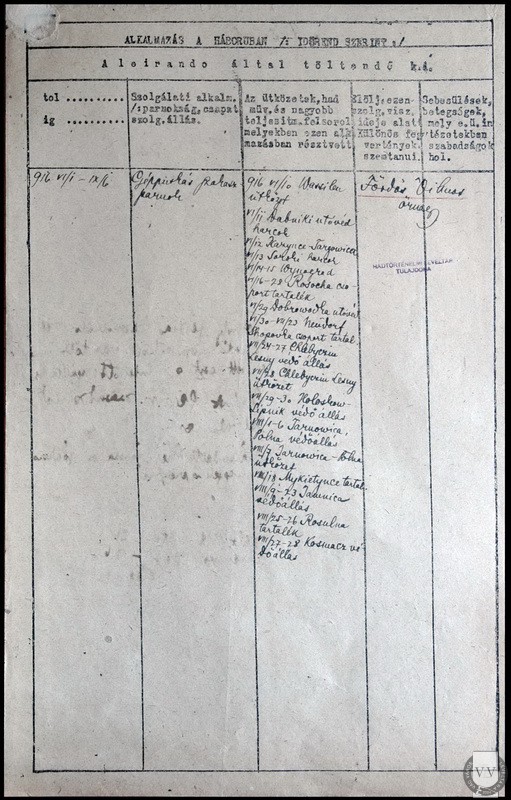 ALKALMAZÁS A HÁBORUBAN /: IDŐREND SZERINT :/
A l e i r a n d o  á l t a l  t ö l t e n d ő  k.i.
tol ..........
ig ..........
Szolgálati alkalm.
/:parnokság, csapat
szolg.állás.
Az ütközetek,had
müv.és nagyobb
teljesitm.felsorol
melyekben ezen alk
mazásban résztvett.
Előlj,ezen-
szolg,visz.
ideje alatt
Különös feg
vertények.
szemtanui.
Sebesülések,
betegségek,
mely e.ü.in
tézetekben
szabadságok
hol.
916 VI/1 - IX/6
Géppuskás szakasz
parnok
916 VI/10 Wassileu
ütközet
VI/11 Babniki utóvéd
harcok
VI/12 Harynce-Targowica
VI/13 Soroki harcok
VI/14-15 Wynograd
VI/16-28 Rosocha cso-
port tartalék
VI/29 Dobrowodka utóvéd
VI/30-VII/23 Neudorf
Skopowka csoport tartal.
VII/24-27 Chlebyczin
Lesny védő állás
VII/28 Chlebyczin Lesny
ütközet
VII/29-30 Holoskow-
Lipnik védő állás
VIII/1-6 Tarnowica
Polna védőállás
VIII/7 Tarnowica-Polna
ütközet
VIII/8 Mykietynce tartal.
VIII/9-23 Jamnica
védőállás
VIII/25-26 Rosulna
tartalék
VIII/27-28 Kosmacz vé-
dőállás
Fördős Vilmos
őrmag
HADTÖRTÉNELMI LEVÉLTÁR
TULAJDONA
VV